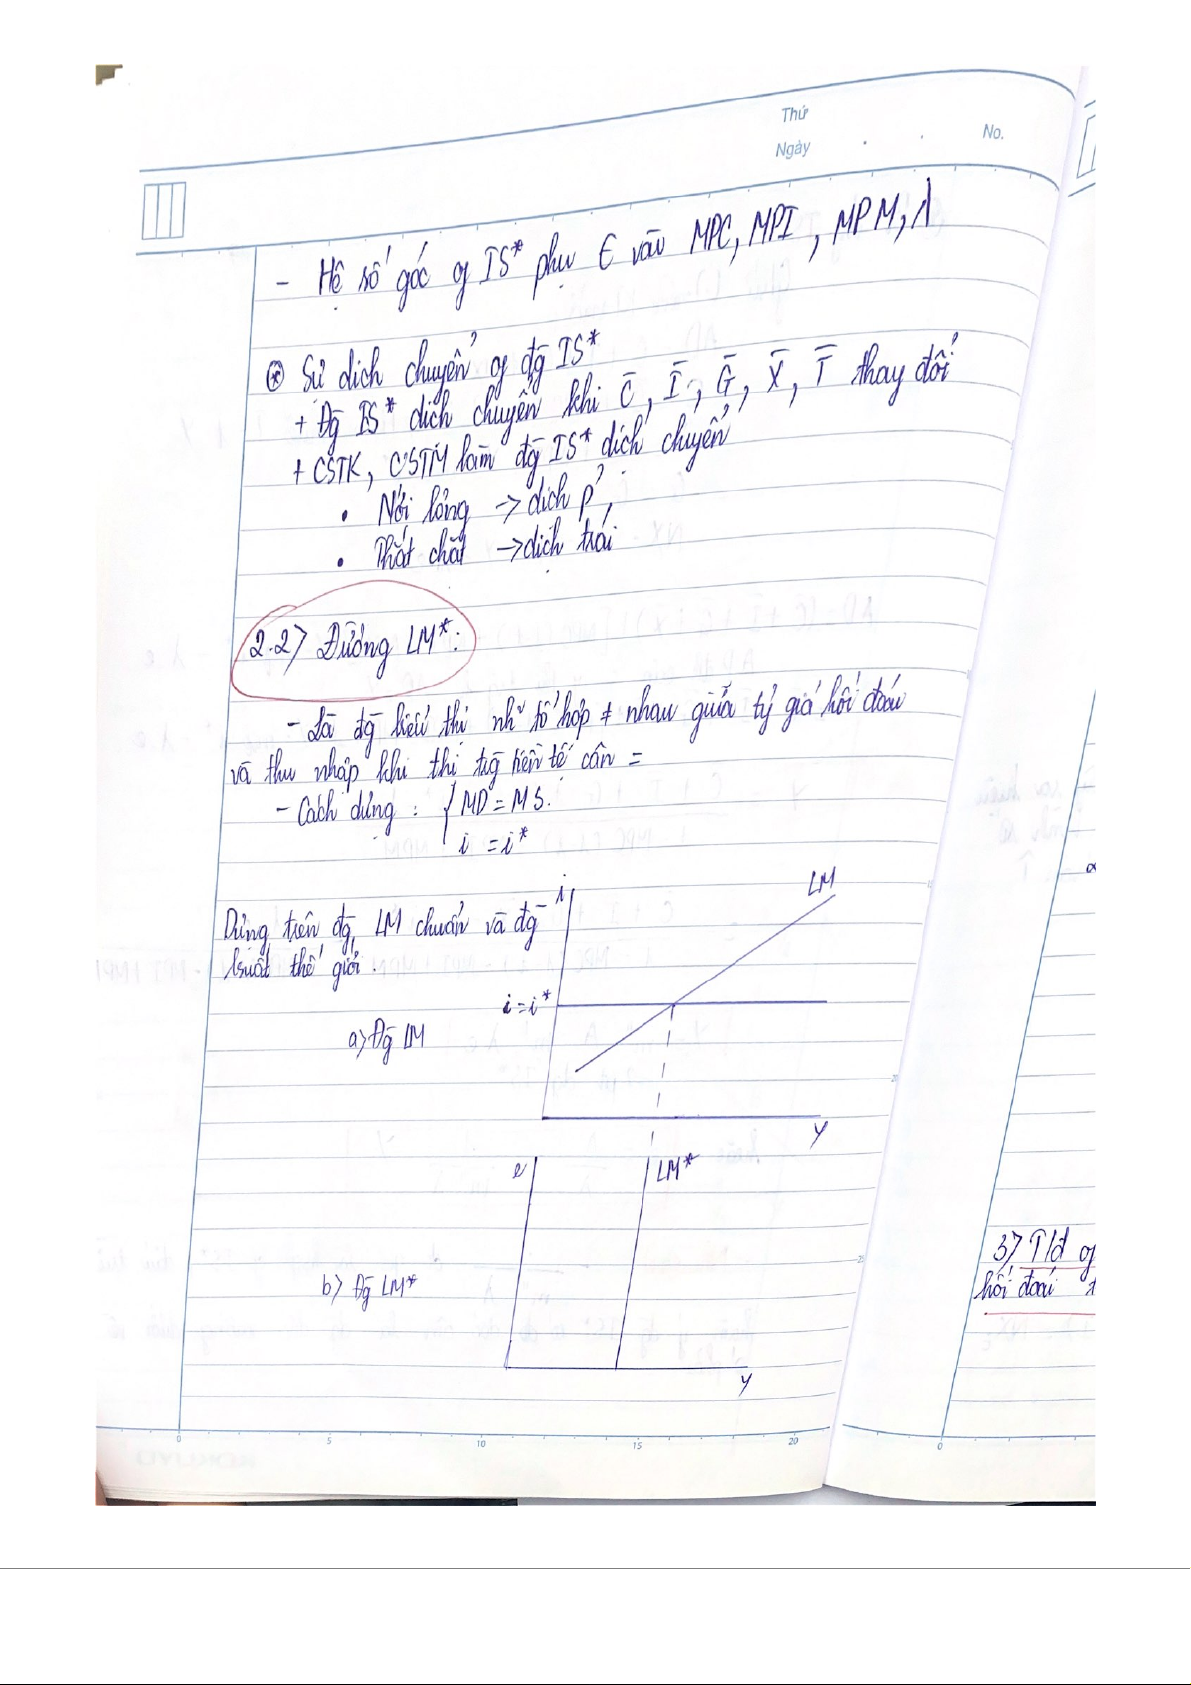 Thứ
Ngày . . No.
- Hệ số góc of IS* phụ ∈ vào MPC, MPI, MPM, λ
⊛ Sự dịch chuyển of đg IS*
+ Đg IS* dịch chuyển khi C̄, Ī, Ḡ, X̄, T̄ thay đổi
+ CSTK, CSTM làm đg IS* dịch chuyển
• Nới lỏng → dịch p',
• Thắt chặt → dịch trái
2.2> Đường LM*:
- Là đg biểu thị nh~ tổ hợp ≠ nhau giữa tỷ giá hối đoái
và thu nhập khi thị trg tiền tệ cân =
- Cách dựng : { MD = MS.
i = i*
Dựng trên đg LM chuẩn và đg
lsuất thế giới.
i
LM
i = i*
a> Đg LM
Y
e
LM*
b> Đg LM*
Y
3> T/đ of
hối đoái
0 5 10 15 20
0